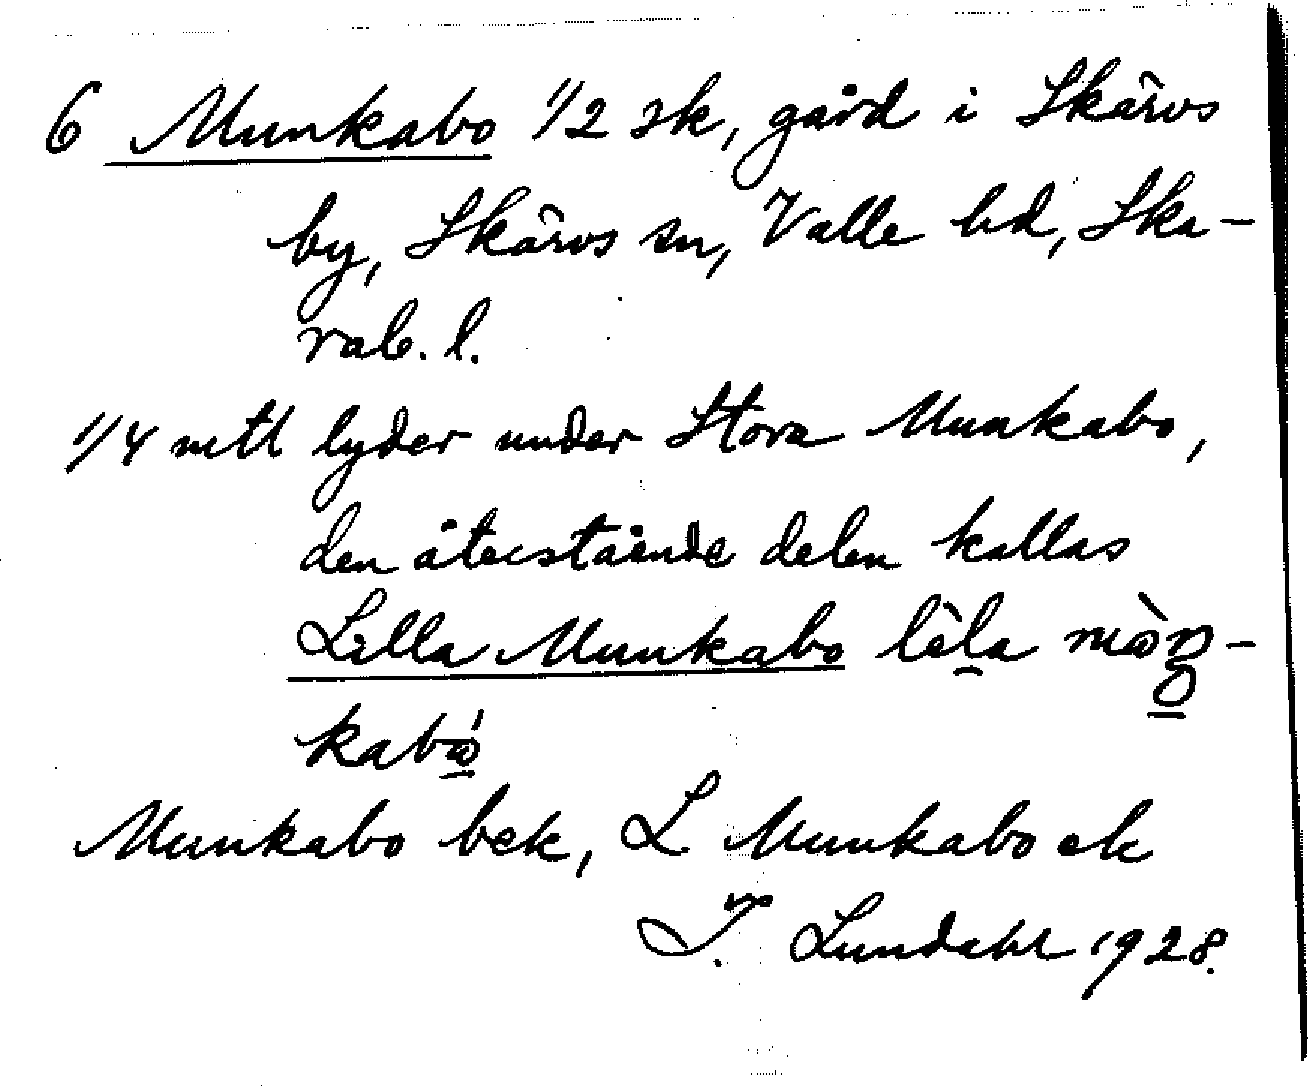 6 Munkabo 1/2 sk, gård i Skärvs
by, Skärvs sn, Valle hd, Ska-
rab. l.
1/4 mtl lyder under Stora Munkabo,
den återstående delen kallas
Lilla Munkabo
Munkabo bek, L Munkabo ek
I. Lundahl 1928.